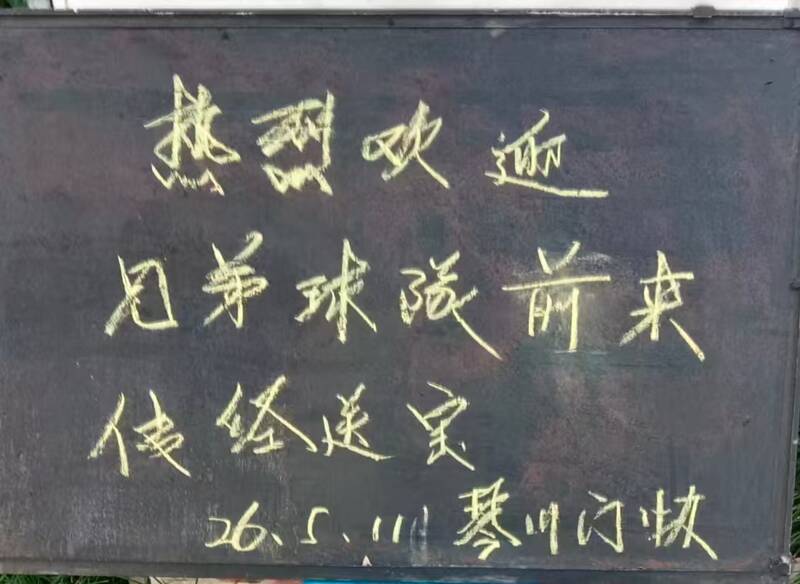 热烈欢迎
兄弟球队前来
传经送宝
26.5.11 琴川门快